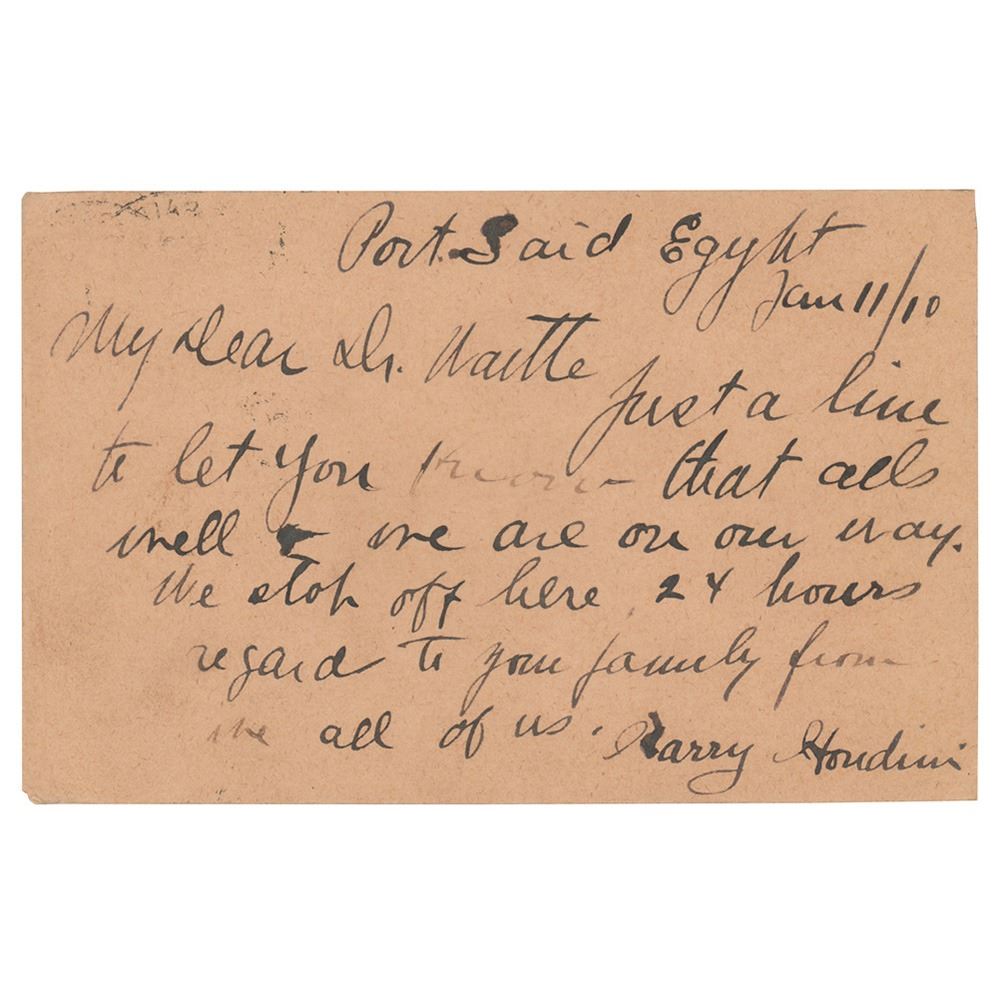 Port Said Egypt
Jan 11/10
My Dear Dr. Waitte
Just a line
to let you know that alls
well & we are on our way.
We stop off here 24 hours
regard to your family from
me all of us. Harry Houdini